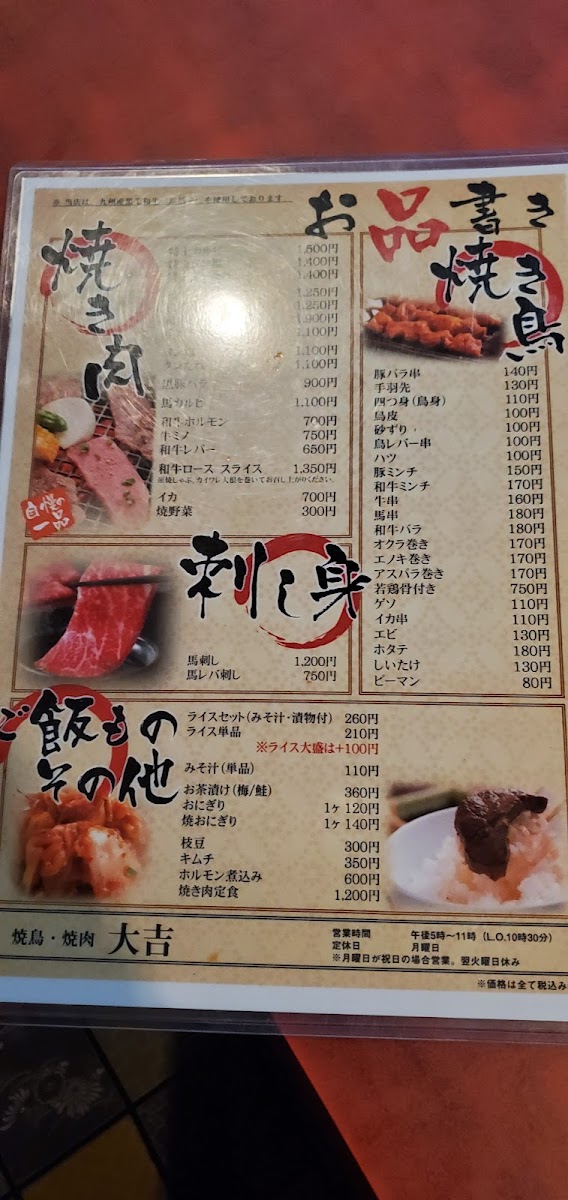 ※ 当店は、九州産黒毛和牛 を使用しております
お品書き
焼き肉
1,500円
1,400円
1,400円
1,250円
1,250円
1,900円
1,100円
1,100円
1,100円
黒豚バラ 900円
馬カルビ 1,100円
和牛ホルモン 700円
牛ミノ 750円
和牛レバー 650円
和牛ロース スライス 1,350円
※焼しゃぶ、カイワレ大根を巻いてお召し上がりください。
イカ 700円
焼野菜 300円
自慢の一品
焼き鳥
豚バラ串 140円
手羽先 130円
四つ身(鳥身) 110円
鳥皮 100円
砂ずり 100円
鳥レバー串 100円
ハツ 100円
豚ミンチ 150円
和牛ミンチ 170円
牛串 160円
馬串 180円
和牛バラ 180円
オクラ巻き 170円
エノキ巻き 170円
アスパラ巻き 170円
若鶏骨付き 750円
ゲソ 110円
イカ串 110円
エビ 130円
ホタテ 180円
しいたけ 130円
ピーマン 80円
刺し身
馬刺し 1,200円
馬レバ刺し 750円
ご飯もの
その他
ライスセット(みそ汁・漬物付) 260円
ライス単品 210円
※ライス大盛は+100円
みそ汁(単品) 110円
お茶漬け(梅/鮭) 360円
おにぎり 1ヶ 120円
焼おにぎり 1ヶ 140円
枝豆 300円
キムチ 350円
ホルモン煮込み 600円
焼き肉定食 1,200円
焼鳥・焼肉 大吉
営業時間 午後5時〜11時 (L.O,10時30分)
定休日 月曜日
※月曜日が祝日の場合営業。翌火曜日休み
※価格は全て税込み